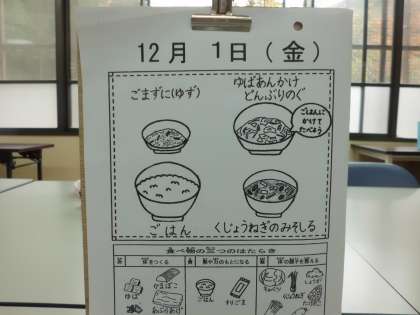 12月 1日(金)
ごまずに(ゆず)
ゆばあんかけ
どんぶりのぐ
ごはんに
かけて
たべよう
ごはん
くじょうねぎのみそしる
食べ物の三つのはたらき
体をつくる
熱や力のもとになる
体の調子を整える
ゆば
かまぼこ
ごはん
すりごま
しょうが
あぶらあげ